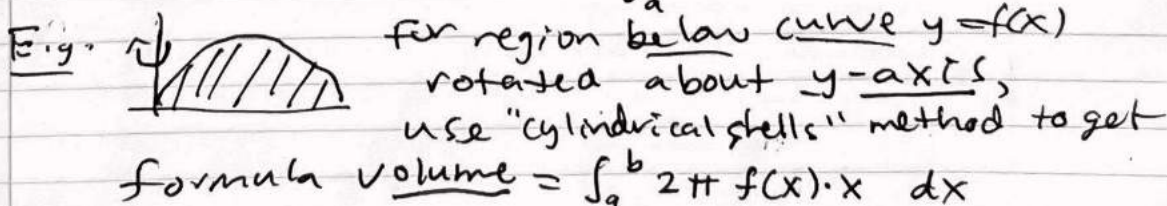 E.g. for region below curve y=f(x)
rotated about y-axis,
use "cylindrical shells" method to get
formula volume = ∫ₐᵇ 2π f(x)·x dx